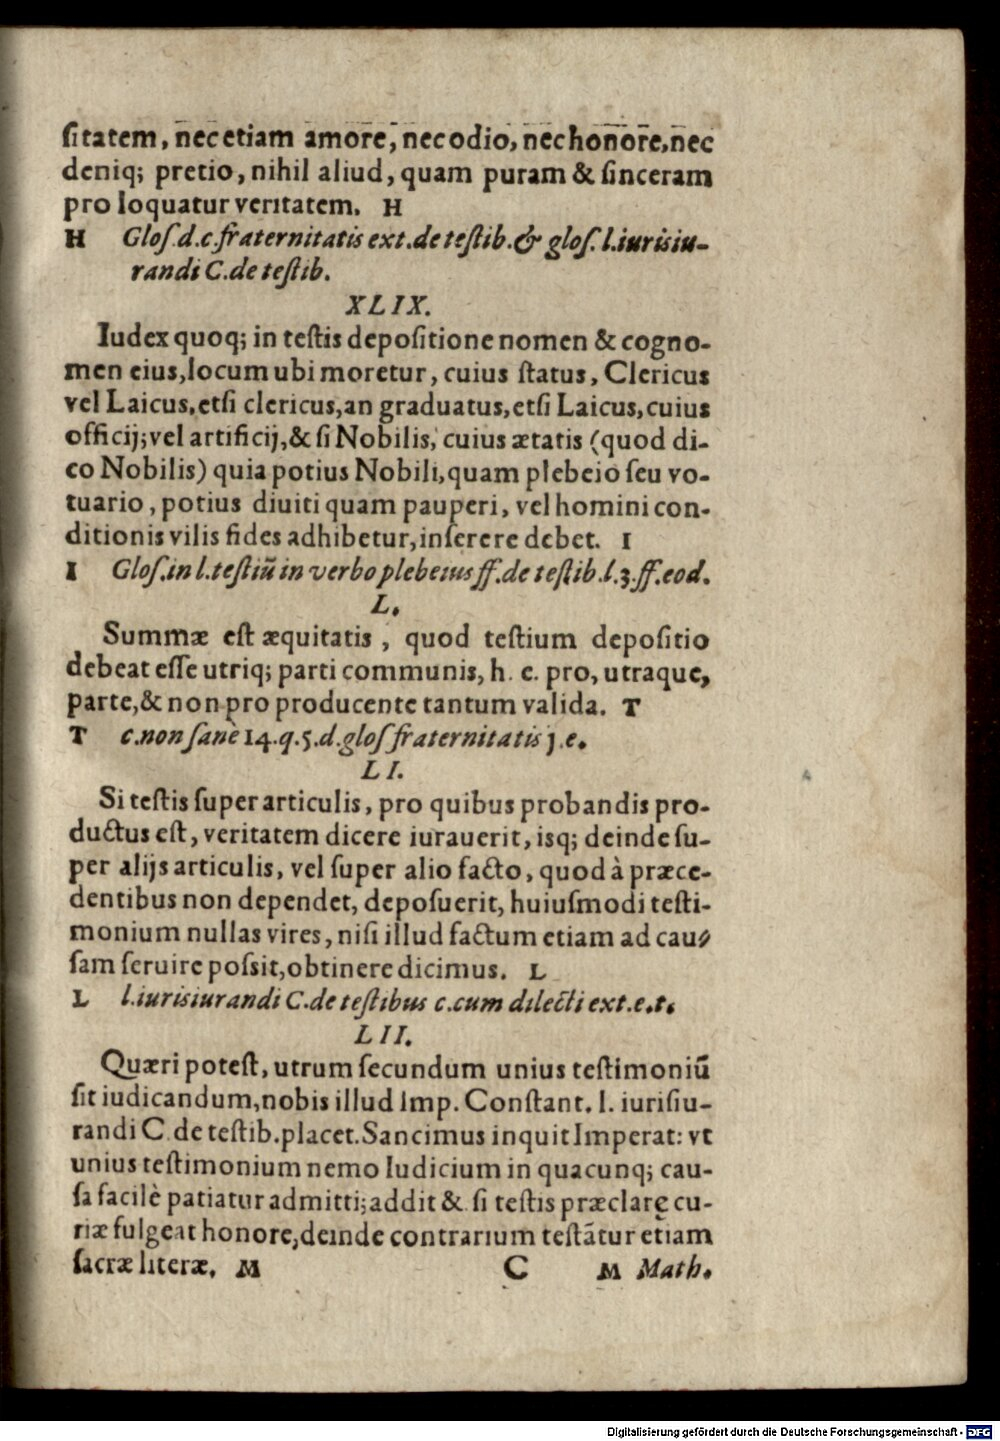 ſitatem, nec etiam amore, nec odio, nec honore, nec
deniq; pretio, nihil aliud, quam puram & ſinceram
pro loquatur veritatem. H
H Gloſ.d.c.fraternitatis ext.de teſtib.& gloſ.l.iurisiu-
randi C.de teſtib.
XLIX.
Iudex quoq; in teſtis depoſitione nomen & cogno-
men eius, locum ubi moretur, cuius ſtatus, Clericus
vel Laicus, etſi clericus, an graduatus, etſi Laicus, cuius
officij; vel artificij, & ſi Nobilis, cuius ætatis (quod di-
co Nobilis) quia potius Nobili, quam plebeio ſeu vo-
tuario, potius diuiti quam pauperi, vel homini con-
ditionis vilis fides adhibetur, inſerere debet. I
I Gloſ.in l.teſtiū in verbo plebeius ff.de teſtib.l.3.ff.eod.
L.
Summæ eſt æquitatis, quod teſtium depoſitio
debeat eſſe utriq; parti communis, h. e. pro, utraque,
parte, & non pro producente tantum valida. T
T c.non ſanè 14.q.5.d.gloſ fraternitatis j.e.
LI.
Si teſtis ſuper articulis, pro quibus probandis pro-
ductus eſt, veritatem dicere iurauerit, isq; deinde ſu-
per alijs articulis, vel ſuper alio facto, quod à præce-
dentibus non dependet, depoſuerit, huiuſmodi teſti-
monium nullas vires, niſi illud factum etiam ad cau-
ſam ſeruire poſsit, obtinere dicimus. L
L l.iurisiurandi C.de teſtibus c.cum dilecti ext.e.t.
LII.
Quæri poteſt, utrum ſecundum unius teſtimoniū
ſit iudicandum, nobis illud Imp. Conſtant. l. iuriſiu-
randi C. de teſtib. placet. Sancimus inquit Imperat: vt
unius teſtimonium nemo Iudicium in quacunq; cau-
ſa facilè patiatur admitti; addit & ſi teſtis præclarę cu-
riæ fulgeat honore, deinde contrarium teſtātur etiam
ſacræ literæ. M
C M Math.
Digitalisierung gefördert durch die Deutsche Forschungsgemeinschaft - DFG